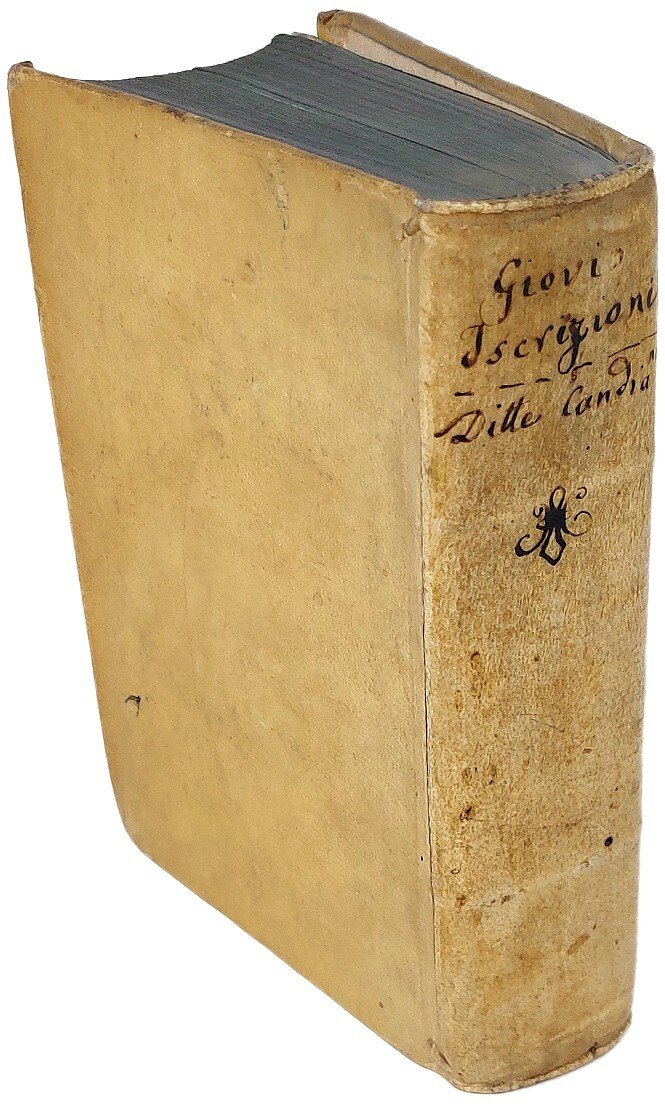 Giovio
Iscrizioni
Ditte Candia